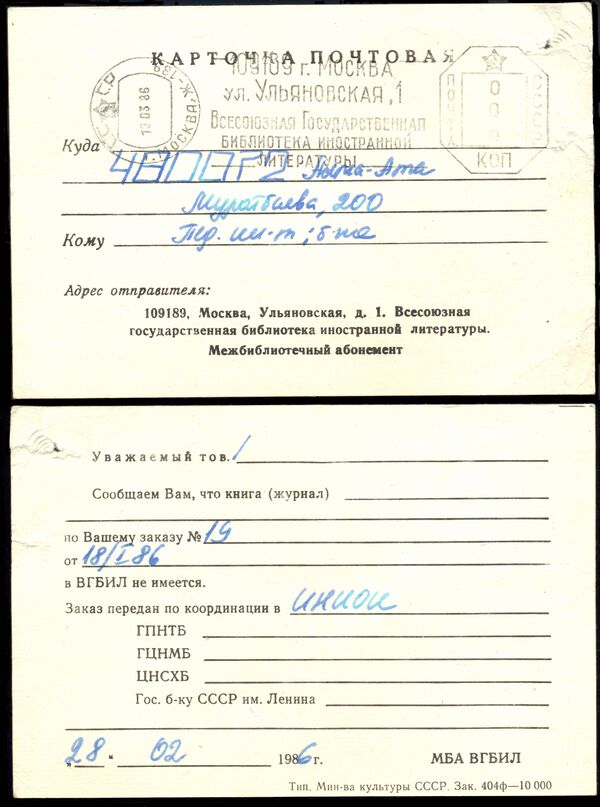 КАРТОЧКА ПОЧТОВАЯ
109189 г. МОСКВА
УЛ. УЛЬЯНОВСКАЯ, 1
ВСЕСОЮЗНАЯ ГОСУДАРСТВЕННАЯ
БИБЛИОТЕКА ИНОСТРАННОЙ
ЛИТЕРАТУРЫ
СССР
Ж-189
г. МОСКВА
ПОЧТА
СССР
0
0
0
КОП
Куда
Алма-Ата
Муратбаева, 200
Кому Пед. ин-т; б-ка
Адрес отправителя:
109189, Москва, Ульяновская, д. 1. Всесоюзная
государственная библиотека иностранной литературы.
Межбиблиотечный абонемент
Уважаемый тов.!
Сообщаем Вам, что книга (журнал)
по Вашему заказу № 19
от 18/I 86
в ВГБИЛ не имеется.
Заказ передан по координации в ИНИОН
ГПНТБ
ГЦНМБ
ЦНСХБ
Гос. б-ку СССР им. Ленина
„28“ 02 1986г. МБА ВГБИЛ
Тип. Мин-ва культуры СССР. Зак. 404ф—10 000